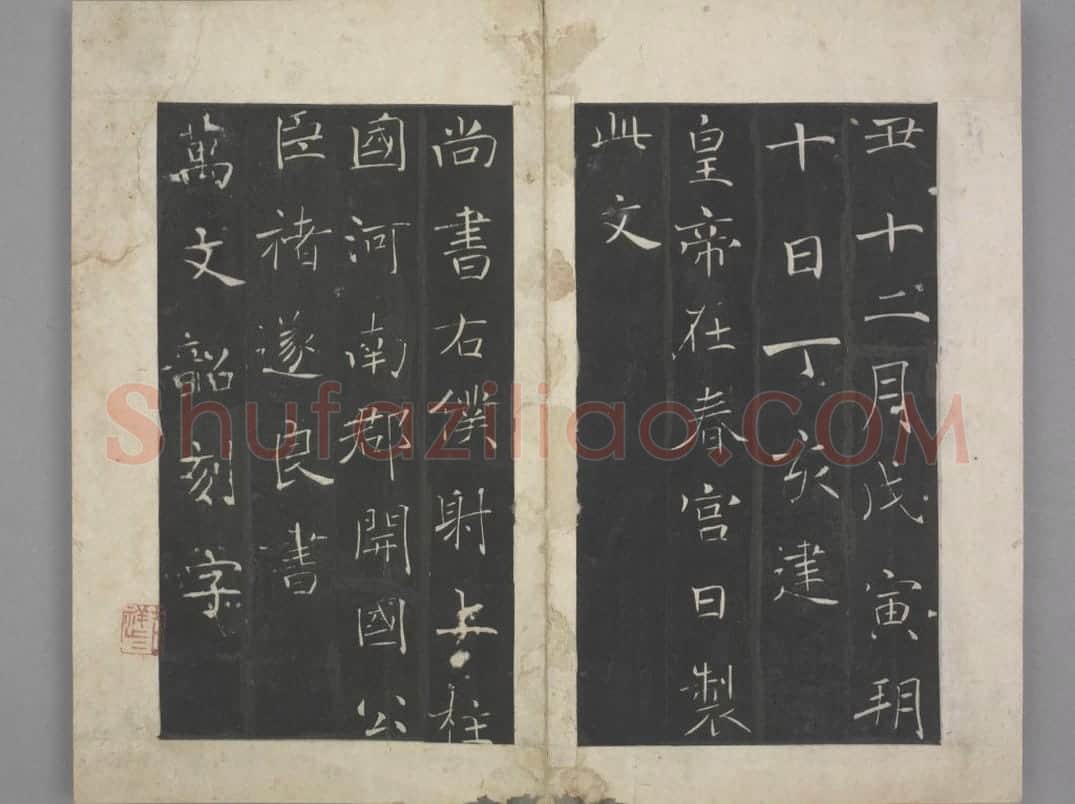 丑十二月戊寅朔
十日丁亥建
皇帝在春宮日製
此文
尚書右僕射上柱
國河南郡開國公
臣褚遂良書
萬文韶刻字
Shufaziliao.COM